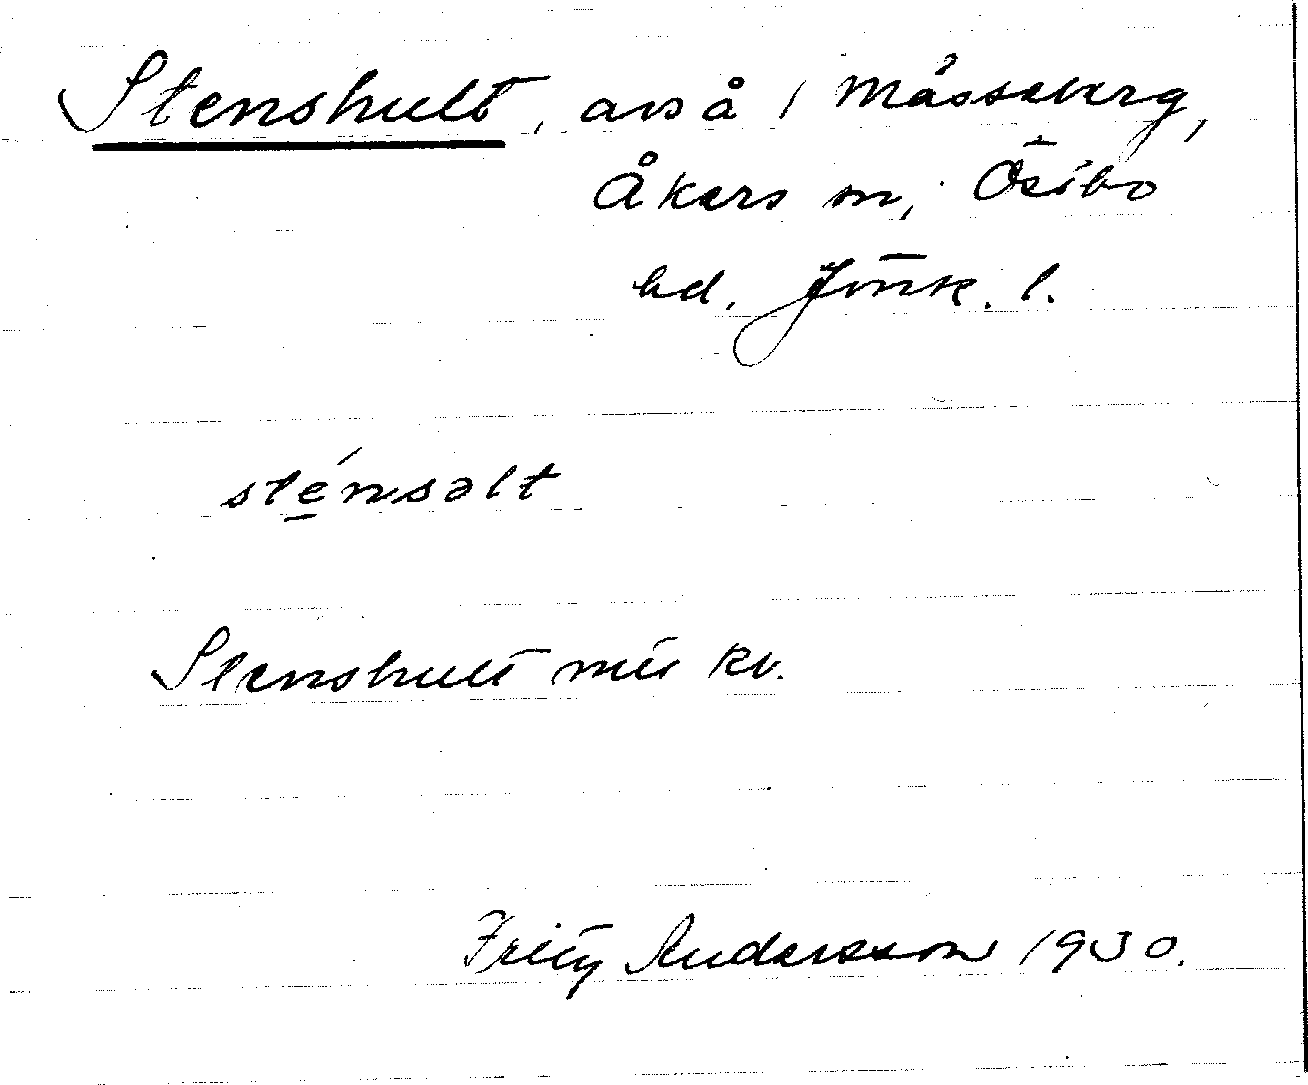 Stenshult, avs å / Mässeberg,
Åkers sn, Östbo
hd. Jönk. l.
sténsəlt
Stenshult mil kv.
Fritz Andersson 1930.